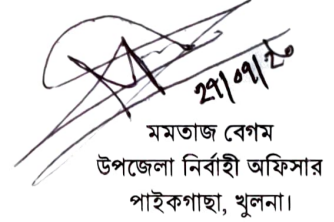 ২৭/০৭/২০
মমতাজ বেগম
উপজেলা নির্বাহী অফিসার
পাইকগাছা, খুলনা।